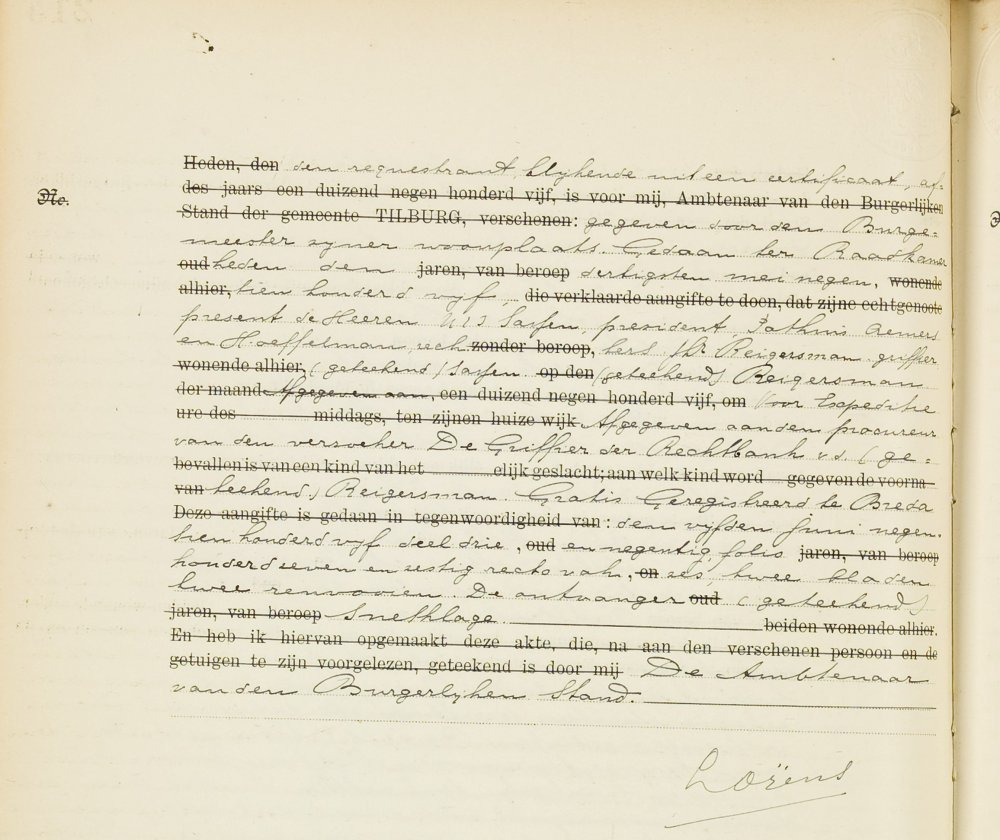 Heden, den den requestrant, blijkende uit een certificaat, af-
No. des jaars een duizend negen honderd vijf, is voor mij, Ambtenaar van den Burgerlijken
Stand der gemeente TILBURG, verschenen: gegeven door den Burge-
meester zyner woonplaats. Gedaan ter Raadkamer
oud heden den jaren, van beroep dertigsten mei negen, wonende
alhier, tien honderd vyf die verklaarde aangifte te doen, dat zijne echtgenoote
present de Heeren Sassen, president, Aemers
en Hoeffelman, rech zonder beroep, ters, Jhr Reigersman griffier
wonende alhier, (geteekend) Sassen op den (geteekend) Reigersman
der maand Afgegeven aan, een duizend negen honderd vijf, om Voor Expeditie
ure des middags, ten zijnen huize wijk Afgegeven aan den procureur
van den verzoeker De Griffier der Rechtbank vd. (ge-
bevallen is van een kind van het elijk geslacht; aan welk kind word gegeven de voorna-
van teekend) Reigersman. Gratis Geregistreerd te Breda
Deze aangifte is gedaan in tegenwoordigheid van: den vyfden Juni negen-
tien honderd vyf deel drie, oud en negentig, folio jaren, van beroep
honderd zeven en zestig recto vak, en zes, twee bladen
twee renvooien. De ontvanger oud (geteekend)
jaren, van beroep Snethlage. beiden wonende alhier.
En heb ik hiervan opgemaakt deze akte, die, na aan den verschenen persoon en de
getuigen te zijn voorgelezen, geteekend is door mij De Ambtenaar
van den Burgerlyken Stand.
Loÿens